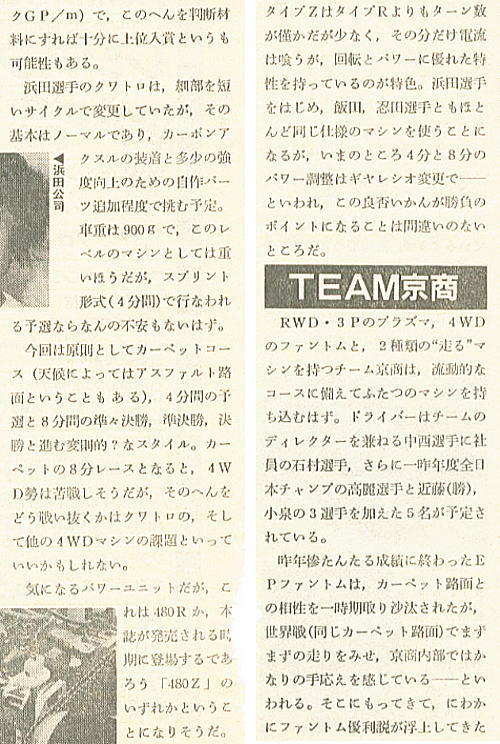 クGP／m）で，このへんを判断材
料にすれば十分に上位入賞というも
可能性もある。
浜田選手のクワトロは，細部を短
いサイクルで変更していたが，その
基本はノーマルであり，カーボンア
クスルの装着と多少の強
度向上のための自作パー
ツ追加程度で挑む予定。
車重は900gで，このレ
ベルのマシンとしては重
いほうだが，スプリント
形式（4分間）で行なわれ
る予選ならなんの不安もないはず。
◀浜田公司
今回は原則としてカーペットコー
ス（天候によってはアスファルト路
面ということもある），4分間の予
選と8分間の準々決勝，準決勝，決
勝と進む変則的？なスタイル。カー
ペットの8分レースとなると，4W
D勢は苦戦しそうだが，そのへんを
どう戦い抜くかはクワトロの，そし
て他の4WDマシンの課題といって
いいかもしれない。
気になるパワーユニットだが，こ
れは480Rか，本
誌が発売される時
期に登場するであ
ろう「480Z」の
いずれかというこ
とになりそうだ。
タイプZはタイプRよりもターン数
が僅かだが少なく，その分だけ電流
は喰うが，回転とパワーに優れた特
性を持っているのが特色。浜田選手
をはじめ，飯田，忍田選手ともほと
んど同じ仕様のマシンを使うことに
なるが，いまのところ4分と8分の
パワー調整はギヤレシオ変更で——
といわれ，この良否いかんが勝負の
ポイントになることは間違いのない
ところだ。
TEAM京商
RWD・3Pのプラズマ，4WD
のファントムと，2種類の“走る”マ
シンを持つチーム京商は，流動的な
コースに備えてふたつのマシンを持
ち込むはず。ドライバーはチームの
ディレクターを兼ねる中西選手に社
員の石村選手，さらに一昨年度全日
本チャンプの高麗選手と近藤（勝），
小泉の3選手を加えた5名が予定さ
れている。
昨年惨たんたる成績に終わったE
Pファントムは，カーペット路面と
の相性を一時期取り沙汰されたが，
世界戦（同じカーペット路面）でまず
まずの走りをみせ，京商内部ではか
なりの手応えを感じている——とい
われる。そこにもってきて，にわか
にファントム優利説が浮上してきた